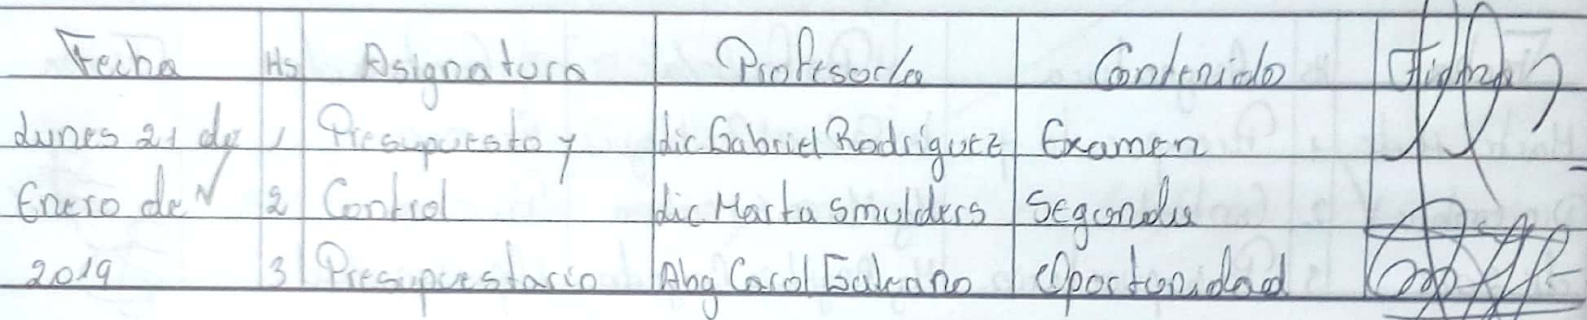 Fecha Hs Asignatura Profesor/a Contenido Firma
Lunes 21 de 1 Presupuesto y Lic Gabriel Rodríguez Examen
Enero de 2 Control Lic. Marta Smulders Segunda
2019 3 Presupuestario Abg Carol Galeano Oportunidad